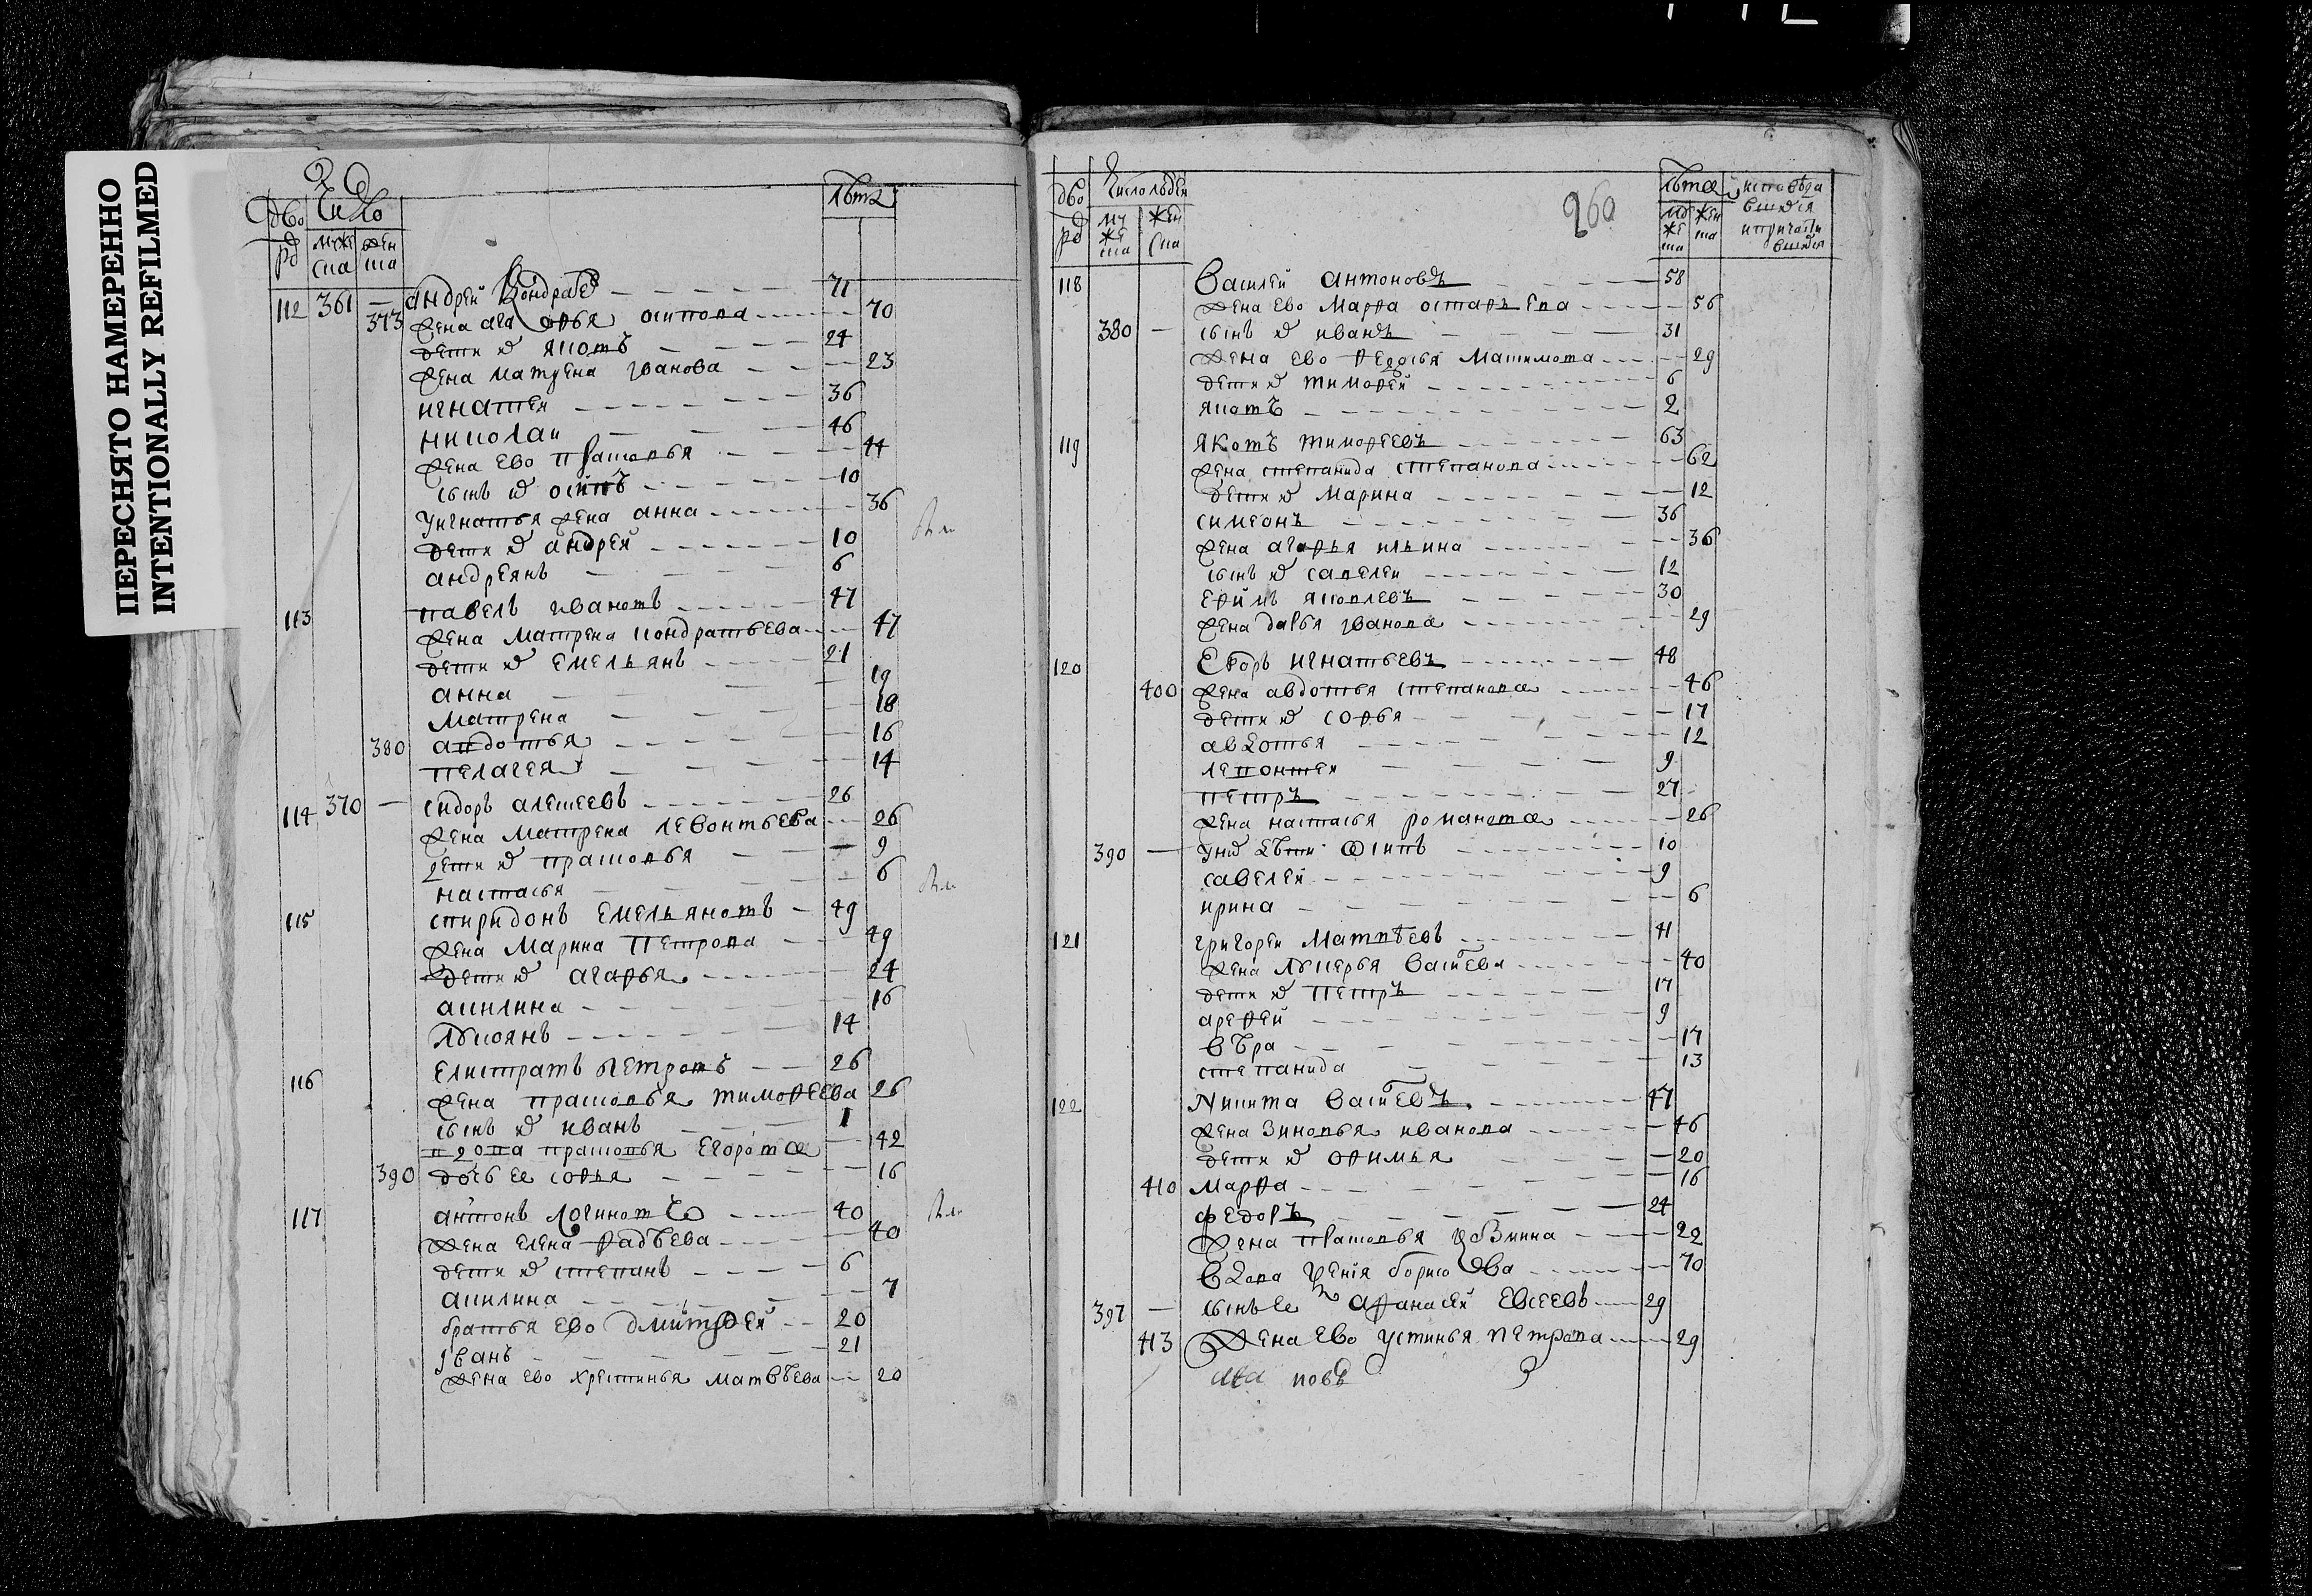 ПЕРЕСНЯТО НАМЕРЕННО
INTENTIONALLY REFILMED
дво рд
Число
мꙋже ска
жен ска
лѣта
112 361 — андрей Кондратев 71
373 жена ага софья осипова 70
дети их яковъ 24
жена матрена іванова 23
игнатеи 36
николаи 46
жена ево прасковья 44
сынъ их осипъ 10
у игнатья жена анна 36
дети их андреи 10
андреянъ 6
113 павелъ івановъ 47
жена матрена кондратьева 47
дети их емельянъ 21
анна 19
матрена 18
380 авдотья 16
пелагея 14
114 370 — сидоръ алексеевъ 26
жена матрена левонтьева 26
дети их прасковья 9
настасья 6
115 спиридонъ емельяновъ 49
жена марина петрова 49
дети их агафья 24
акилина 16
лукоянъ 14
116 елистратъ петровъ 26
жена прасковья тимофеева 26
сынъ их иванъ 1
вдова прасковья егорова 42
390 дочь ее софья 16
117 антонъ логиновъ 40
жена елена фадѣева 40
дети их степанъ 6
акилина 7
братья ево дмитрей 20
іванъ 21
жена ево хрестинья матвѣева 20
260
дво рд
Число людеи
мꙋ же ска
жен ска
лѣта
мꙋ же ска
жен ска
исповѣда вшихся и причасти вшихся
118 василей антоновъ 58
жена ево марфа остафьева 56
380 — сынъ их иванъ 31
жена ево федосья максимова 29
дети их тимофей 6
яковъ 2
119 яковъ тимофеевъ 63
жена степанида степанова 62
дети их марина 12
симеонъ 36
жена агафья ильина 36
сынъ их савелеи 12
ефимъ яковлевъ 30
жена дарья іванова 29
120 егоръ игнатьевъ 48
400 жена авдотья степанова 46
дети их софья 17
авдотья 12
левонтеи 9
петръ 27
жена настасья романова 26
390 — у них дѣти осипъ 10
савелей 9
ирина 6
121 григореи матвѣевъ 41
жена лукерья васильева 40
дети их петръ 17
арефеи 9
вѣра 17
степанида 13
122 никита васильевъ 47
жена зиновья иванова 46
дети их офимья 20
410 марфа 16
федоръ 24
жена прасковья кузмина 22
вдова ксенія борисова 70
397 — сынъ ее афанасеи евсеевъ 29
413 жена ево устинья петрова 29